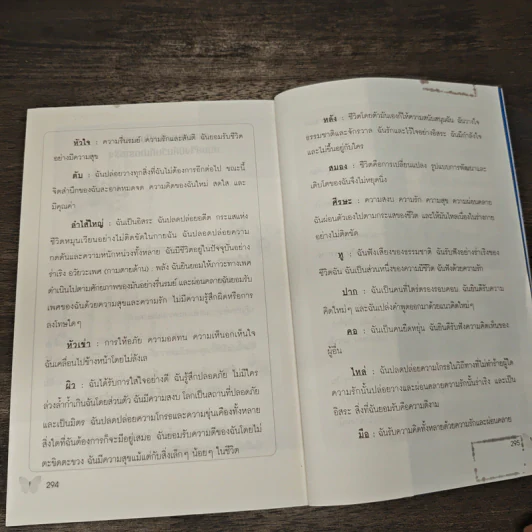 หัวใจ : ความรื่นรมย์ ความรักและสันติ ฉันยอมรับชีวิต
อย่างมีความสุข
ตับ : ฉันปล่อยวางทุกสิ่งที่ฉันไม่ต้องการอีกต่อไป ขณะนี้
จิตสำนึกของฉันสะอาดหมดจด ความคิดของฉันใหม่ สดใส และ
มีคุณค่า
ลำไส้ใหญ่ : ฉันเป็นอิสระ ฉันปลดปล่อยอดีต กระแสแห่ง
ชีวิตหมุนเวียนอย่างไม่ติดขัดในกายฉัน ฉันปลดปล่อยความ
กดดันและความหนักหน่วงทั้งหลาย ฉันมีชีวิตอยู่ในปัจจุบันอย่าง
ร่าเริง อวัยวะเพศ (กามตายด้าน) : พลัง ฉันยินยอมให้ภาวะทางเพศ
ดำเนินไปตามศักยภาพของมันอย่างรื่นรมย์ และผ่อนคลายฉันยอมรับ
เพศของฉันด้วยความสุขและความรัก ไม่มีความรู้สึกผิดหรือการ
ลงโทษใดๆ
หัวเข่า : การให้อภัย ความอดทน ความเห็นอกเห็นใจ
ฉันเคลื่อนไปข้างหน้าโดยไม่ลังเล
ผิว : ฉันได้รับการใส่ใจอย่างดี ฉันรู้สึกปลอดภัย ไม่มีใคร
ล่วงล้ำก้ำเกินฉันโดยส่วนตัว ฉันมีความสงบ โลกเป็นสถานที่ปลอดภัย
และเป็นมิตร ฉันปลดปล่อยความโกรธและความขุ่นเคืองทั้งหลาย
สิ่งใดที่ฉันต้องการก็จะมีอยู่เสมอ ฉันยอมรับความดีของฉันโดยไม่
ตะขิดตะขวง ฉันมีความสุขแม้แต่กับสิ่งเล็กๆ น้อยๆ ในชีวิต
294
หลัง : ชีวิตโดยตัวมันเองก็ให้ความสนับสนุนฉัน ฉันวางใจ
ธรรมชาติและจักรวาล ฉันรักและไว้ใจอย่างอิสระ ฉันมีกำลังใจ
และไม่ขึ้นอยู่กับใคร
สมอง : ชีวิตคือการเปลี่ยนแปลง รูปแบบการพัฒนาและ
เติบโตของฉันจึงไม่หยุดนิ่ง
ศีรษะ : ความสงบ ความรัก ความสุข ความผ่อนคลาย
ฉันผ่อนตัวเองไปตามกระแสของชีวิต และให้มันไหลเนื่องในร่างกาย
อย่างไม่ติดขัด
หู : ฉันฟังเสียงของธรรมชาติ ฉันรับฟังอย่างร่าเริงของ
ชีวิตฉัน ฉันเป็นส่วนหนึ่งของความมีชีวิต ฉันฟังด้วยความรัก
ปาก : ฉันเป็นคนที่ไตร่ตรองรอบคอบ ฉันยินดีรับความ
คิดใหม่ๆ และฉันเปล่งคำพูดออกมาด้วยแนวคิดใหม่ๆ
คอ : ฉันเป็นคนยืดหยุ่น ฉันยินดีรับฟังความคิดเห็นของ
ผู้อื่น
ไหล่ : ฉันปลดปล่อยความโกรธไปวิถีทางที่ไม่ทำร้ายผู้ใด
ความรักนั้นปล่อยวางและผ่อนคลายความรักนั้นร่าเริง และเป็น
อิสระ สิ่งที่ฉันยอมรับคือความดีงาม
มือ : ฉันรับความคิดทั้งหลายด้วยความรักและผ่อนคลาย
295